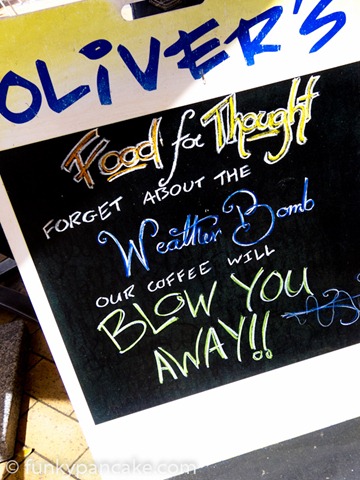 OLIVER'S
Food for Thought
FORGET ABOUT THE
Weather Bomb
OUR COFFEE WILL
BLOW YOU
AWAY!!
© funkypancake.com